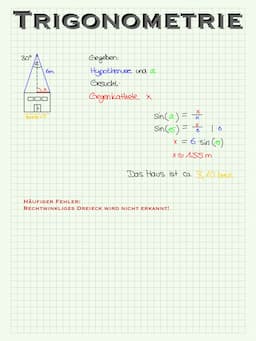 TRIGONOMETRIE
30°
α
6m
x
Gegeben:
Hypothenuse und α
Gesucht:
Gegenkathete x
sin(α) = x/6
x = 6 · sin(
x ≈ 1,55 m
Das Haus ist ca. 3,10 breit
HÄUFIGER FEHLER:
RECHTWINKLIGES DREIECK WIRD NICHT ERKANNT!